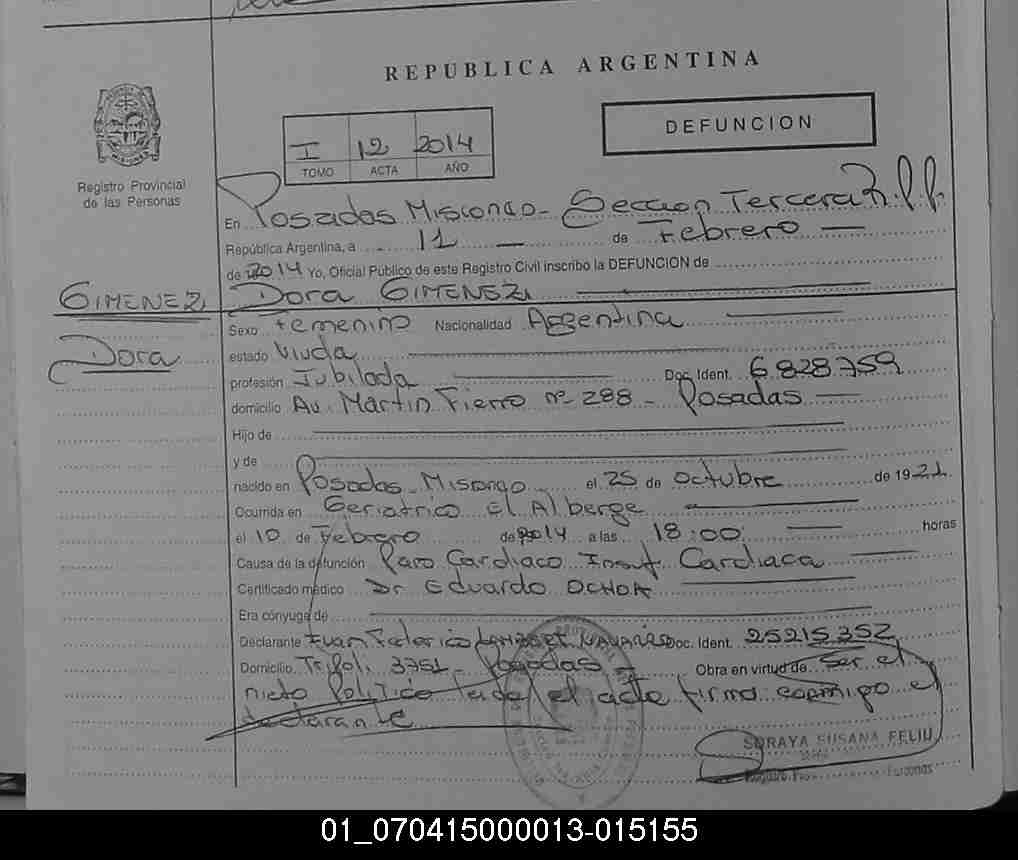 REPUBLICA ARGENTINA
DEFUNCION
I 12 2014
TOMO ACTA AÑO
Registro Provincial
de las Personas
En Posadas Misiones - Seccion Tercera
República Argentina, a 11 de Febrero
de 2014 Yo, Oficial Público de este Registro Civil inscribo la DEFUNCION de
GIMENEZ Dora GIMENEZ
Sexo Femenino Nacionalidad Argentina
Dora
estado Viuda
profesión Jubilada Doc. Ident. 6828759
domicilio Av. Martin Fierro nº 288 - Posadas
Hijo de
y de
nacido en Posadas - Misiones el 25 de octubre de 1921
Ocurrida en Geriatrico El Alberge
el 10 de Febrero de 2014 a las 18:00 horas
Causa de la defunción Paro Cardiaco Insuf. Cardiaca
Certificado médico Dr Eduardo OCHOA
Era cónyuge de
Declarante Federico Doc. Ident. 25215352
Domicilio Tripoli 3751 - Posadas - Obra en virtud de Ser el
nieto Politico Leida el acta firma conmigo el
declarante
SORAYA SUSANA FELIU
01_070415000013-015155